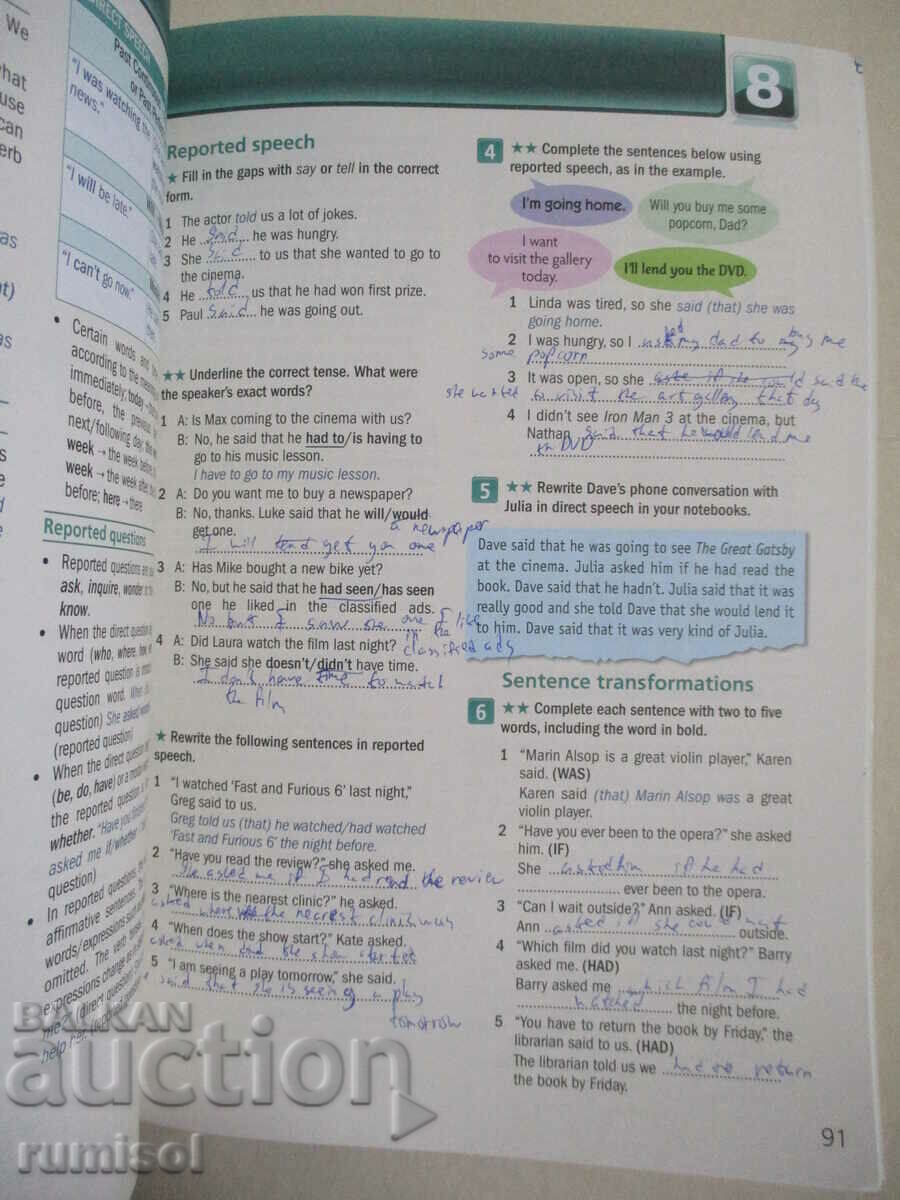 We
what
use
can
verb
as
t)
as
s
e
d
DIRECT SPEECH
Past Continuous
or Past
"I was watching the
news."
"I will be late."
"I can't go now."
• Certain words and
according to the meaning
immediately; today →
before, the previous
next/following day;
week → the week before
week → the week after
before; here → there
Reported questions
• Reported questions are
ask, inquire, wonder
know.
• When the direct question
word (who, where, how,
reported question is
question word.
question) She asked
(reported question)
• When the direct question
(be, do, have) or a modal
the reported question
whether. "Have you finished
asked me if/whether
question)
• In reported questions
affirmative sentences.
words/expressions such
omitted. The verb
expressions change as
me?" (direct question)
help her. (reported
8
Reported speech
★ Fill in the gaps with say or tell in the correct
form.
1 The actor told us a lot of jokes.
2 He said he was hungry.
3 She said to us that she wanted to go to
the cinema.
4 He told us that he had won first prize.
5 Paul said he was going out.
★★ Underline the correct tense. What were
the speaker's exact words?
1 A: Is Max coming to the cinema with us?
B: No, he said that he had to/is having to
go to his music lesson.
I have to go to my music lesson.
2 A: Do you want me to buy a newspaper?
B: No, thanks. Luke said that he will/would
get one.
a newspaper
I will get you one
3 A: Has Mike bought a new bike yet?
B: No, but he said that he had seen/has seen
one he liked in the classified ads.
No but I saw one I like
in the
classified ads
4 A: Did Laura watch the film last night?
B: She said she doesn't/didn't have time.
I don't have time to watch
the film
★ Rewrite the following sentences in reported
speech.
1 "I watched 'Fast and Furious 6' last night,"
Greg said to us.
Greg told us (that) he watched/had watched
'Fast and Furious 6' the night before.
2 "Have you read the review?" she asked me.
She asked me if I had read the review
3 "Where is the nearest clinic?" he asked.
asked where the nearest clinic was
4 "When does the show start?" Kate asked.
asked when the show started
5 "I am seeing a play tomorrow," she said.
said that she is seeing a play
tomorrow
4 ★★ Complete the sentences below using
reported speech, as in the example.
I'm going home.
Will you buy me some
popcorn, Dad?
I want
to visit the gallery
today.
I'll lend you the DVD.
1 Linda was tired, so she said (that) she was
going home.
2 I was hungry, so I asked my dad to buy me
some popcorn
3 It was open, so she said she
she wanted to visit the art gallery that day
4 I didn't see Iron Man 3 at the cinema, but
Nathan said that he would lend me
the DVD
5 ★★ Rewrite Dave's phone conversation with
Julia in direct speech in your notebooks.
Dave said that he was going to see The Great Gatsby
at the cinema. Julia asked him if he had read the
book. Dave said that he hadn't. Julia said that it was
really good and she told Dave that she would lend it
to him. Dave said that it was very kind of Julia.
Sentence transformations
6 ★★ Complete each sentence with two to five
words, including the word in bold.
1 "Marin Alsop is a great violin player," Karen
said. (WAS)
Karen said (that) Marin Alsop was a great
violin player.
2 "Have you ever been to the opera?" she asked
him. (IF)
She asked him if he had
ever been to the opera.
3 "Can I wait outside?" Ann asked. (IF)
Ann asked if she could wait outside.
4 "Which film did you watch last night?" Barry
asked me. (HAD)
Barry asked me which film I had
watched the night before.
5 "You have to return the book by Friday," the
librarian said to us. (HAD)
The librarian told us we had to return
the book by Friday.
91
BALKAN
auction
rumisol